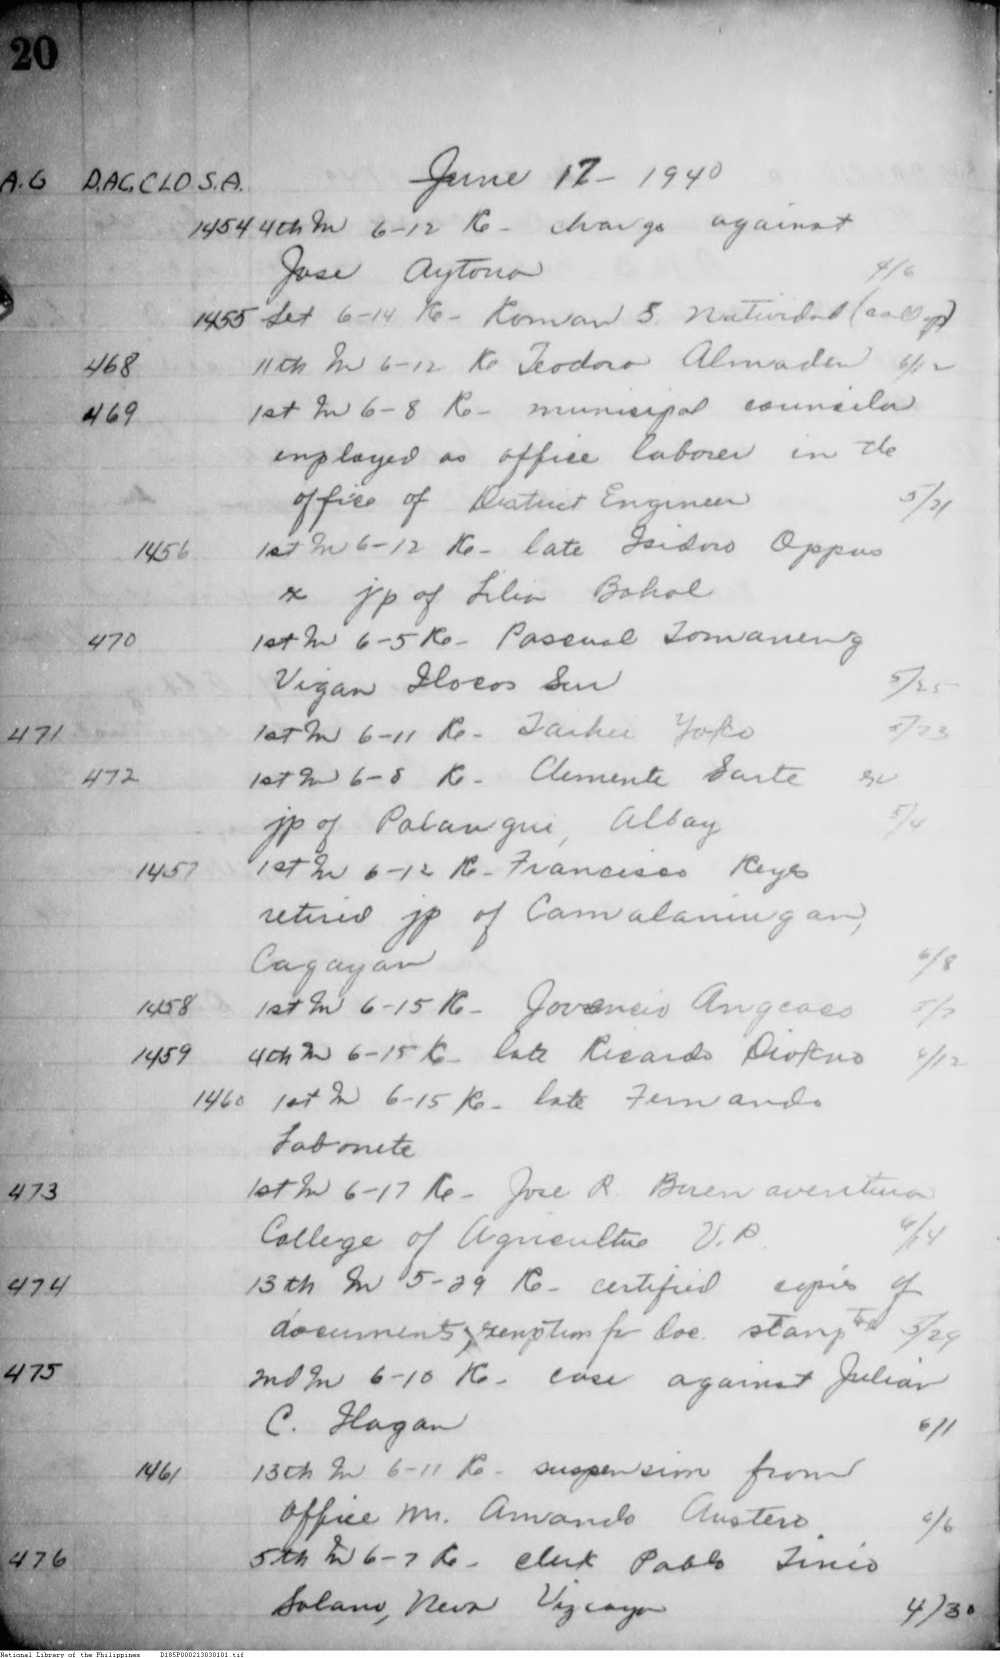 20
A.G D.AG. CLO S.A. June 17 - 1940
1454 4th In 6-12 Re - charge against
Jose Aytona 4/6
1455 Let 6-14 Re - Roman S. Natividad (call up)
468 11th In 6-12 Re Teodoro Almaden 6/12
469 1st In 6-8 Re - municipal councilor
employed as office laborer in the
office of District Engineer 5/21
1456 1st In 6-12 Re - late Isidoro Oppus
jp of Lila Bohol
470 1st In 6-5 Re - Pascual Tomaneng
Vigan Ilocos Sur 5/25
471 1st In 6-11 Re - Yoko 5/23
472 1st In 6-8 Re - Clemente Sarte
jp of Polangui, Albay 5/4
1457 1st In 6-12 Re - Francisco Reyes
retired jp of Camalaniugan,
Cagayan 6/8
1458 1st In 6-15 Re - Jovencio Angcaco
1459 4th In 6-15 Re - late Ricardo Diokno 6/12
1460 1st In 6-15 Re - late Fernando
Labonete
473 1st In 6-17 Re - Jose R. Buenaventura
College of Agriculture U.P. 6/14
474 13th In 5-29 Re - certified copies of
documents, exemption fr doc. stamp tax 5/29
475 2nd In 6-10 Re - case against Julian
C. Ilagan 6/1
1461 13th In 6-11 Re - suspension from
office Mr. Amando Austero. 6/6
476 5th In 6-7 Re - clerk Pablo Tinio
Solano, Neva Vizcaya 4/30
National Library of the Philippines D185P000213030101.tif